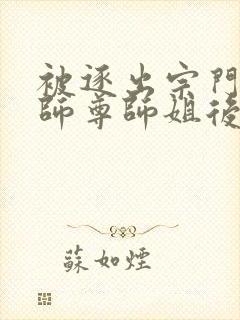 被逐出宗門
師尊師姐後
蘇如煙